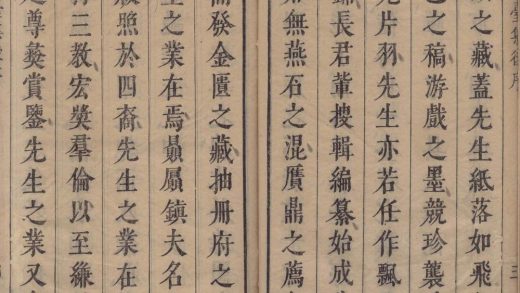 後序 三
之藏蓋先生紙落如飛
之稿游戲之墨競珍襲
片羽先生亦若任作飄
長君輩搜輯編纂始成
無燕石之混贗鼎之薦
發金匱之藏抽冊府之
之業在焉贔屭鎮夫名
照於四裔先生之業在
三教宏獎羣倫以至縑
尊彝賞鑒先生之業又